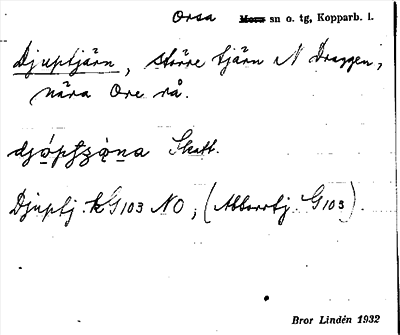 Orsa sn o. tg, Kopparb. l.
Djuptjärn, större tjärn N Draggen,
nära Ore rå.
Skatt.
Djuptj. kG103 NO, (Abborrtj. G103).
Bror Lindén 1932